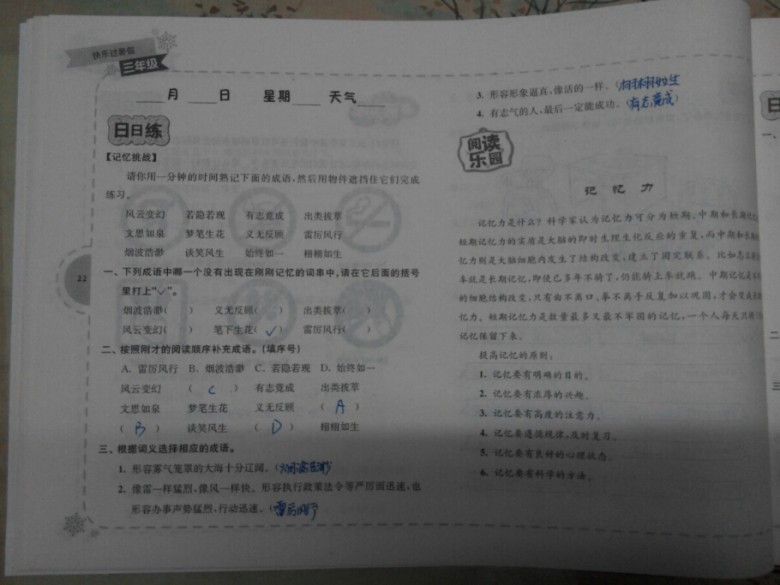 快乐过暑假
三年级
月 日 星期 天气
日日练
【记忆挑战】
请你用一分钟的时间熟记下面的成语,然后用物件遮挡住它们完成
练习。
风云变幻 若隐若现 有志竟成 出类拔萃
文思如泉 梦笔生花 义无反顾 雷厉风行
烟波浩渺 谈笑风生 始终如一 栩栩如生
一、下列成语中哪一个没有出现在刚刚记忆的词串中,请在它后面的括号
里打上“✓”。
烟波浩渺( ) 义无反顾( ) 出类拔萃( )
风云变幻( ) 笔下生花( ✓ ) 雷厉风行( )
二、按照刚才的阅读顺序补充成语。(填序号)
A. 雷厉风行 B. 烟波浩渺 C. 若隐若现 D. 始终如一
风云变幻 ( C ) 有志竟成 出类拔萃
文思如泉 梦笔生花 义无反顾 ( A )
( B ) 谈笑风生 ( D ) 栩栩如生
三、根据词义选择相应的成语。
1. 形容雾气笼罩的大海十分辽阔。(烟波浩渺)
2. 像雷一样猛烈,像风一样快。形容执行政策法令等严厉而迅速,也
形容办事声势猛烈,行动迅速。(雷厉风行)
22
3. 形容形象逼真,像活的一样。(栩栩如生)
4. 有志气的人,最后一定能成功。(有志竟成)
阅读
乐园
记忆力
记忆力是什么?科学家认为记忆力可分为短期、中期和长期记
短期记忆力的实质是大脑的即时生理生化反应的重复,而中期和长期
忆力则是大脑细胞内发生了结构改变,建立了固定联系。比如怎么
本就是长期记忆,即使已多年不骑了,仍能骑上车就跑。中期记忆是
的细胞结构改变,只有曲不离口、拳不离手反复加以巩固,才会变成长
忆力。短期记忆力是数量最多又最不牢固的记忆,一个人每天只
记忆保留下来。
提高记忆的原则:
1. 记忆要有明确的目的。
2. 记忆要有浓厚的兴趣。
3. 记忆要有高度的注意力。
4. 记忆要遵循规律,及时复习。
5. 记忆要有良好的心理状态。
6. 记忆要有科学的方法。